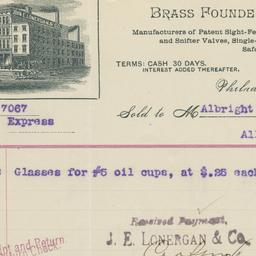 BRASS FOUNDE
Manufacturers of Patent Sight-Fe
and Snifter Valves, Single-
Safe
TERMS: CASH 30 DAYS.
INTEREST ADDED THEREAFTER.
Philad
7067
Sold to M Albright
Express
Al
Glasses for #5 oil cups, at $.25 each
Received Payment,
J. E. LONERGAN & Co.
nt and Return